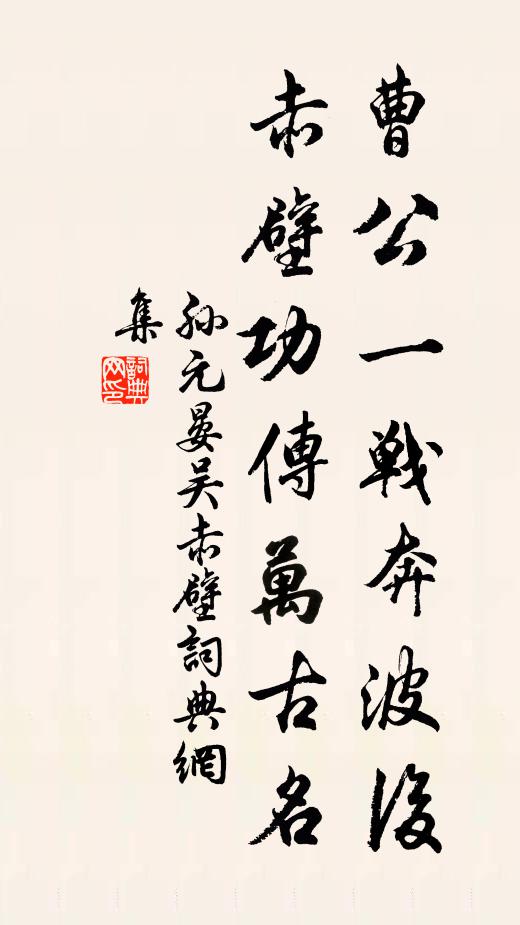 曹公一戰奔波後
赤壁功傳萬古名
孙元晏吴赤壁詞典網
集
詞典网印